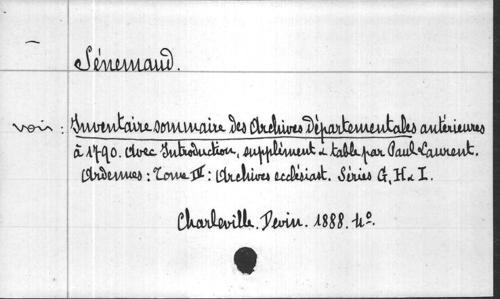 Sénemaud.
voir: Inventaire sommaire des Archives Départementales antérieures
à 1790. Avec Introduction, supplément & table par Paul Laurent.
Ardennes: Tome IV: Archives ecclésiast. Séries G, H & I.
Charleville. Devin. 1888. 4º.